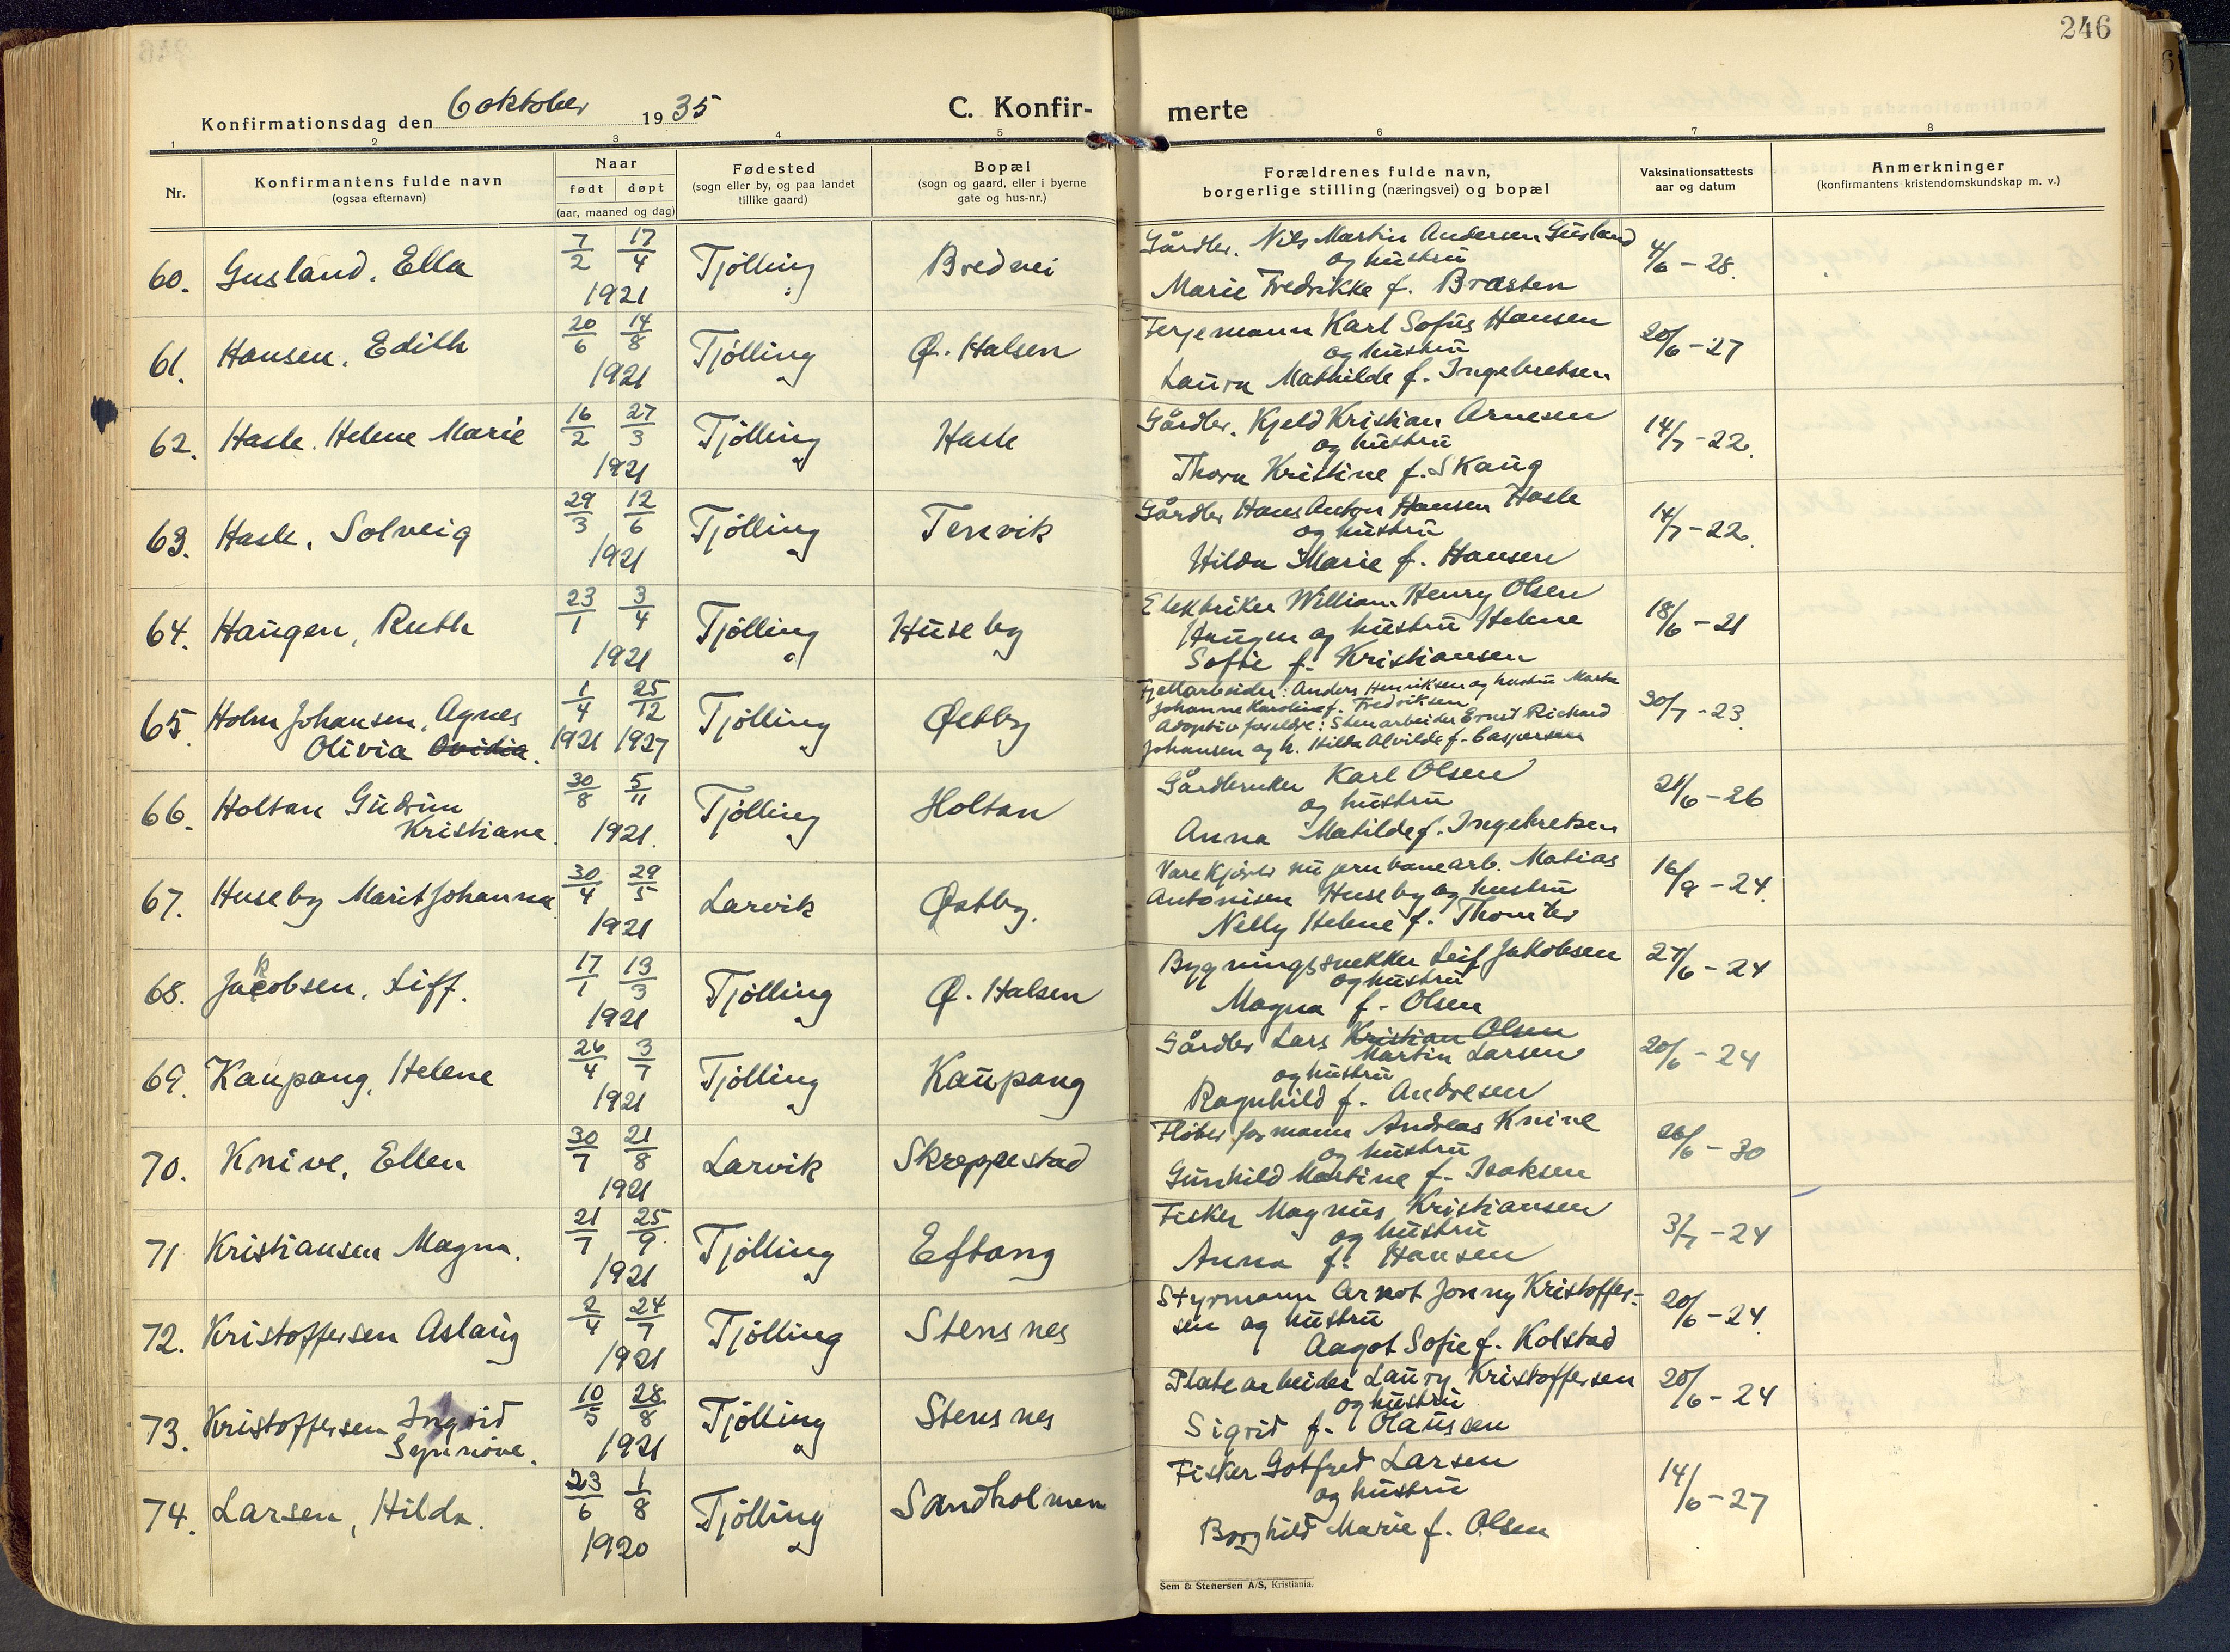 246
Konfirmationsdag den 6 oktober 1935
C. Konfir- merte
1 2 3 4 5 6 7 8
Nr.
Konfirmantens fulde navn
(ogsaa efternavn)
Naar
født døpt
(aar, maaned og dag)
Fødested
(sogn eller by, og paa landet
tillike gaard)
Bopæl
(sogn og gaard, eller i byerne
gate og hus-nr.)
Forældrenes fulde navn,
borgerlige stilling (næringsvei) og bopæl
Vaksinationsattests
aar og datum
Anmerkninger
(konfirmantens kristendomskundskap m. v.)
60. Gusland, Ella 7/2 17/4 1921 Tjølling Bredvei
Gårdbr. Nils Martin Andersen Gusland
og hustru
Marie Fredrikke f. Bråsten
4/6 - 28.
61. Hansen, Edith 20/6 14/8 1921 Tjølling Ø. Halsen
Ferjemann Karl Sofus Hansen
og hustru
Laura Mathilde f. Ingebretsen
20/6 - 27
62. Hasle. Helene Marie 16/2 27/3 1921 Tjølling Hasle
Gårdbr. Kjeld Kristian Arnesen
og hustru
Thora Kristine f. Skaug
14/7 - 22.
63. Hasle, Solveig 29/3 12/6 1921 Tjølling Tenvik
Gårdbr Hans Anton Hansen Hasle
og hustru
Hilda Marie f. Hansen
14/7 - 22.
64. Haugen, Ruth 23/1 3/4 1921 Tjølling Huseby
Elektriker William Henry Olsen
Haugen og hustru Helene
Sofie f. Kristiansen
18/6 - 21
65. Holm Johansen, Agnes
Olivia Ovidia.
1/4 1921 25/12 1927 Tjølling Østby
Fjellarbeider: Anders Henriksen og hustru Marta
Johanne Karoline f. Fredriksen
Adoptivforeldre: Stenarbeider Ernst Richard
Johansen og h. Hilda Alvilde f. Caspersen
30/7 - 23.
66. Holtan Gudrun
Kristiane.
30/8 5/11 1921. Tjølling Holtan
Gårdbruker Karl Olsen
og hustru
Anna Matilde f. Ingebretsen
21/6 - 26
67. Huseby Marit Johanna 30/4 29/5 1921 Larvik Østby.
Varekjører nu jernbanearb. Matias
Antonisen Huseby og hustru
Nelly Helene f.
16/9 - 24.
68. Jakobsen, Siff. 17/1 13/3 1921 Tjølling Ø. Halsen
Bygningssnekker Leif Jakobsen
og hustru
Magna f. Olsen
27/6 - 24
69. Kaupang, Helene 26/4 3/7 1921 Tjølling Kaupang
Gårdbr Lars Kristian Olsen
Martin Larsen
og hustru
Ragnhild f. Andresen
20/6 - 24
70. Knive, Ellen 30/7 21/8 1921 Larvik Skreppestad
Fløterformann Andreas Knive
og hustru
Gunhild Martine f. Isaksen
26/6 - 30
71 Kristiansen Magna. 21/7 25/9. 1921 Tjølling Eftang
Fisker Magnus Kristiansen
og hustru
Anna f. Hansen
3/7 - 24
72. Kristoffersen Aslaug 2/4 24/7 1921 Tjølling Stensnes
Styrmann Arnot Jonny Kristoffer-
sen og hustru
Aagot Sofie f. Kolstad
20/6 - 24.
73. Kristoffersen Ingrid
Synnøve.
10/5 28/8 1921 Tjølling Stensnes
Platearbeider Laury Kristoffersen
og hustru
Sigrid f. Olaussen
20/6 - 24
74. Larsen, Hilda. 23/6 1/8 1920 Tjølling Sandholmen
Fisker Gotfred Larsen
og hustru
Borghild Marie f. Olsen
14/6 - 27
Sem & Stenersen A/S, Kristiania.